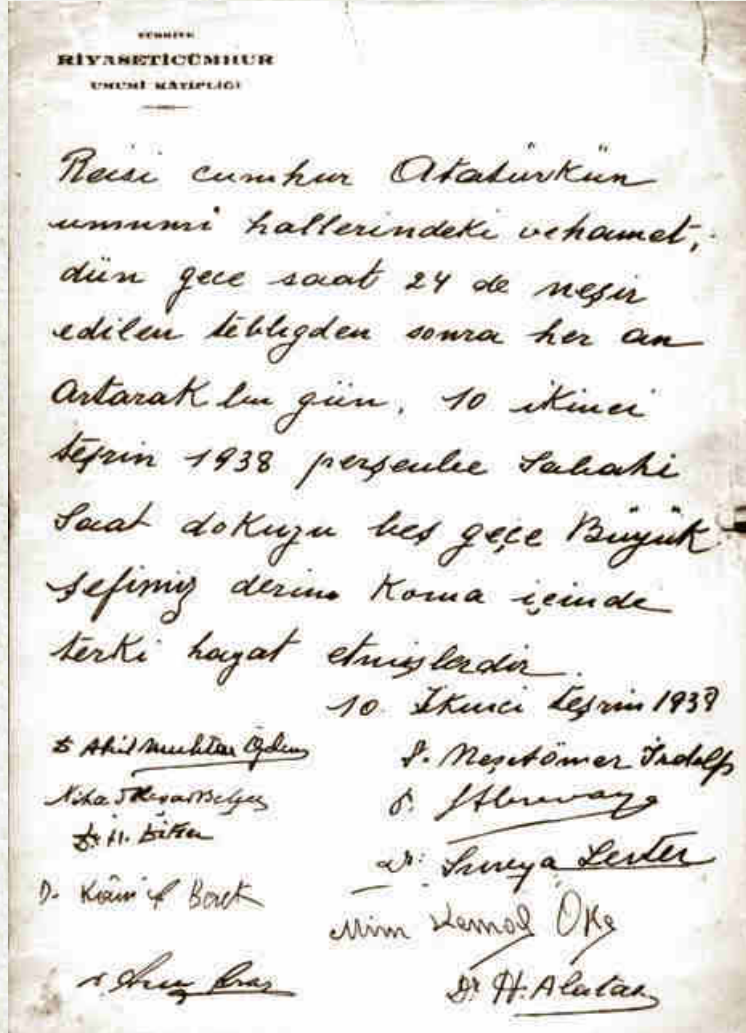 TÜRKİYE
RİYASETİCÜMHUR
UMUMÎ KÂTİPLİĞİ
Reisi cumhur Atatürkün
umumi hallerindeki vehamet,
dün gece saat 24 de neşir
edilen tebligden sonra her an
artarak bu gün, 10 ikinci
teşrin 1938 perşenbe Sabahi
Saat dokuzu beş geçe Büyük
şefimiz derin Koma içinde
terki hayat etmişlerdir.
10 İkinci teşrin 1938
Dr Akil Muhtar Özden
D. Neşetömer İrdelp
Nihad Reşad Belger
Dr. H.
Dr. Sureya Serter
D. Kâmil Berk
Mim Kemal Öke
Dr H. Alatas